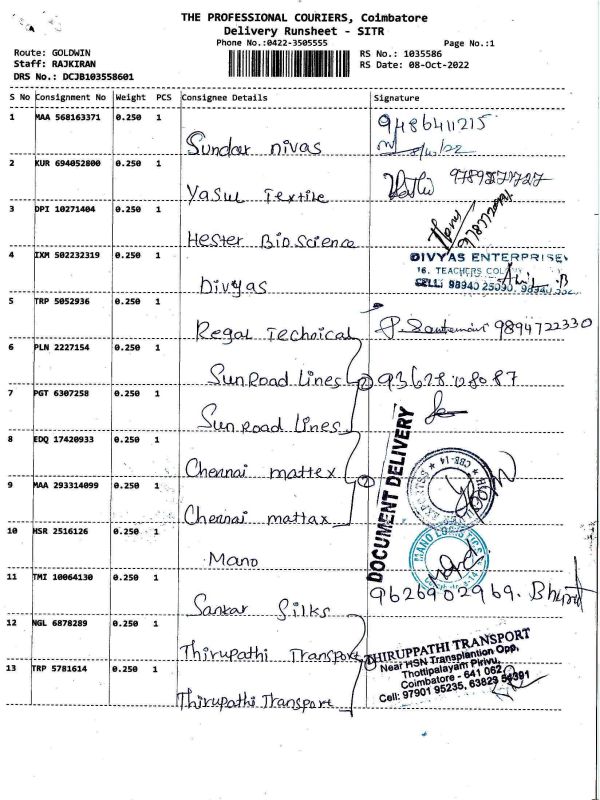 THE PROFESSIONAL COURIERS, Coimbatore
Delivery Runsheet - SITR
Phone No.:0422-3505555 Page No.:1
Route: GOLDWIN RS No.: 1035586
Staff: RAJKIRAN RS Date: 08-Oct-2022
DRS No.: DCJB103558601
S No Consignment No Weight PCS Consignee Details Signature
1 MAA 568163371 0.250 1 9486411215
Sundar nivas
2 KUR 694052800 0.250 1
Yasul Textile
3 DPI 10271404 0.250 1
Hester BioScience
4 IXM 502232319 0.250 1 DIVYAS ENTERPRISE
16, TEACHERS
Divyas CELL: 98940 25090,
5 TRP 5052936 0.250 1
Regal Technical 9894722330
6 PLN 2227154 0.250 1
Sun Road Lines 2
7 PGT 6307258 0.250 1
Sun Road Lines
8 EDQ 17420933 0.250 1 DOCUMENT DELIVERY
Chennai mattex
9 MAA 293314099 0.250 1 2
Chennai mattax
10 HSR 2516126 0.250 1 MANO LOGISTICS
Mano
11 TMI 10064130 0.250 1 9626902969. Bharat
Sankar Silks
12 NGL 6878289 0.250 1 THIRUPPATHI TRANSPORT
Near HSN Transplantion Opp,
Thirupathi Transport Thottipalayam Pirivu,
13 TRP 5781614 0.250 1 Coimbatore - 641 062.
Cell: 97901 95235, 63823 54391
Thirupathi Transport